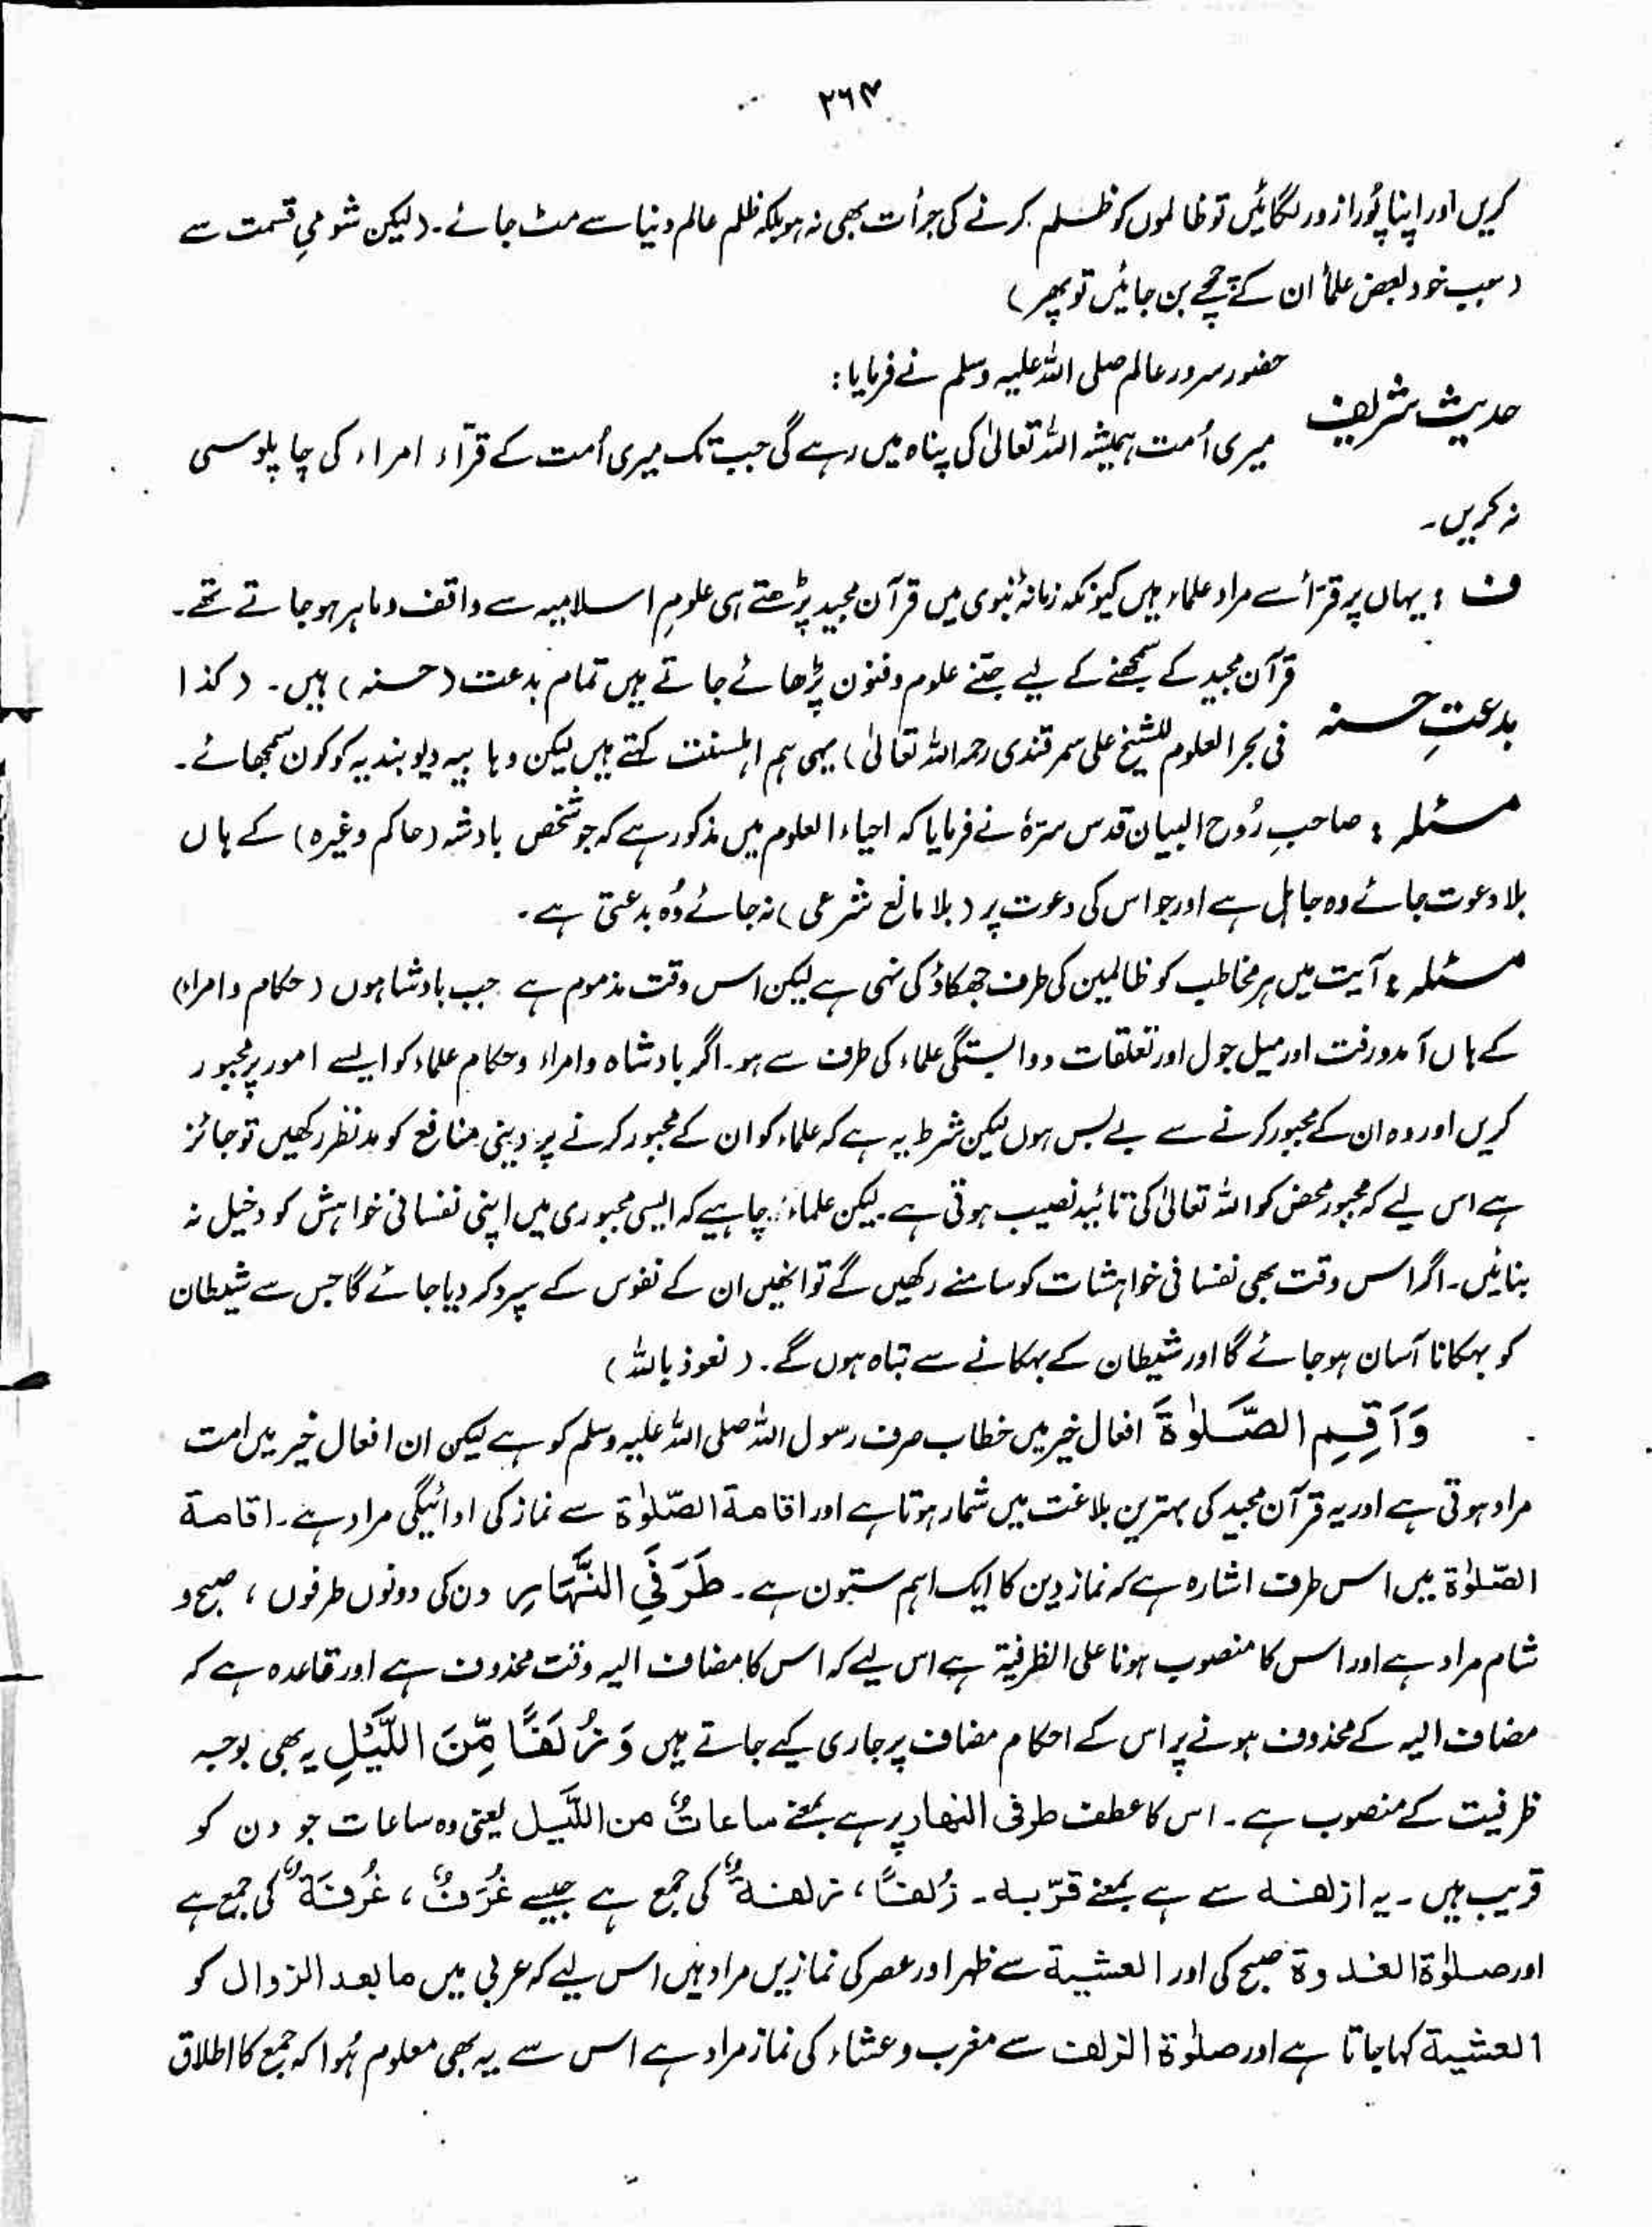 ۲۶۴
کریں اور اپنا پُورا زور لگائیں تو ظالموں کو ظلم کرنے کی جرأت بھی نہ ہو بلکہ ظلم عالمِ دنیا سے مٹ جائے۔ (لیکن شومیِ قسمت سے
(جب خود بعض علماٴ ان کے چمچے بن جائیں تو پھر)
حضور سرور عالم صلی اللہ علیہ وسلم نے فرمایا:
حدیث شریف
میری اُمت ہمیشہ اللہ تعالیٰ کی پناہ میں رہے گی جب تک میری اُمت کے قرآء امراء کی چاپلوسی
نہ کریں۔
ف : یہاں پر قرّأ سے مراد علماء ہیں کیونکہ زمانۂ نبوی میں قرآن مجید پڑھتے ہی علومِ اسلامیہ سے واقف و ماہر ہو جاتے تھے۔
قرآن مجید کے سمجھنے کے لیے جتنے علوم و فنون پڑھائے جاتے ہیں تمام بدعت (حسنہ) ہیں۔ (کذا
بدعتِ حسنہ
فی بحر العلوم للشیخ علی سمرقندی رحمہ اللہ تعالیٰ) یہی ہم اہلسنت کہتے ہیں لیکن وہابیہ دیوبندیہ کو کون سمجھائے۔
مسئلہ : صاحبِ رُوح البیان قدس سترہٗ نے فرمایا کہ احیاء العلوم میں مذکور ہے کہ جو شخص بادشہ (حاکم وغیرہ) کے ہاں
بلا دعوت جائے وہ جاہل ہے اور جو اس کی دعوت پر (بلا مانع شرعی) نہ جائے وُہ بدعتی ہے۔
مسئلہ : آیت میں ہر مخاطب کو ظالمین کی طرف جھکاؤ کی نہی ہے لیکن اس وقت مذموم ہے جب بادشاہوں (حکام و امراء)
کے ہاں آمد ورفت اور میل جول اور تعلقات و وابستگی علماء کی طرف سے ہو۔ اگر بادشاہ و امراء و حکام علماء کو ایسے امور پر مجبور
کریں اور وہ ان کے مجبور کرنے سے بے بس ہوں لیکن شرط یہ ہے کہ علماء کو ان کے مجبور کرنے پر دینی منافع کو مدنظر رکھیں تو جائز
ہے اس لیے کہ مجبور محض کو اللہ تعالیٰ کی تائید نصیب ہوتی ہے۔ لیکن علماء چاہیے کہ ایسی مجبوری میں اپنی نفسانی خواہش کو دخیل نہ
بنائیں۔ اگر اس وقت بھی نفسانی خواہشات کو سامنے رکھیں گے تو انھیں ان کے نفوس کے سپرد کر دیا جائے گا جس سے شیطان
کو بہکانا آسان ہو جائے گا اور شیطان کے بہکانے سے تباہ ہوں گے۔ (نعوذ باللہ)
وَ اَقِمِ الصَّلوٰةَ افعال خیر میں خطاب صرف رسول اللہ صلی اللہ علیہ وسلم کو ہے لیکن ان افعال خیر میں امت
مراد ہوتی ہے اور یہ قرآن مجید کی بہترین بلاغت میں شمار ہوتا ہے اور اقامۃ الصّلوٰۃ سے نماز کی ادائیگی مراد ہے۔ اقامۃ
الصّلوٰۃ میں اس طرف اشارہ ہے کہ نماز دین کا ایک اہم ستون ہے۔ طَرَفَيِ النَّهَارِ دن کی دونوں طرفوں ، صبح و
شام مراد ہے اور اس کا منصوب ہونا علی الظرفیۃ ہے اس لیے کہ اس کا مضاف الیہ وقت محذوف ہے اور قاعدہ ہے کہ
مضاف الیہ کے محذوف ہونے پر اس کے احکام مضاف پر جاری کیے جاتے ہیں وَ زُلَفًا مِّنَ اللَّيْلِ یہ بھی بوجہ
ظرفیت کے منصوب ہے۔ اس کا عطف طرفی النھار پر ہے بمعنے ساعاتٌ من اللّیل یعنی وہ ساعات جو دن کو
قریب ہیں۔ یہ ازلفہ سے ہے بمعنے قرّبہ۔ زُلفًا ، زلفۃٌ کی جمع ہے جیسے غُرَفٌ ، غُرفَۃٌ کی جمع ہے
اور صلوٰۃ الغدوۃ صبح کی اور العشیۃ سے ظہر اور عصر کی نمازیں مراد ہیں اس لیے کہ عربی میں ما بعد الزوال کو
العشیۃ کہا جاتا ہے اور صلوٰۃ الزلف سے مغرب و عشاء کی نماز مراد ہے اس سے یہ بھی معلوم ہُوا کہ جمع کا اطلاق